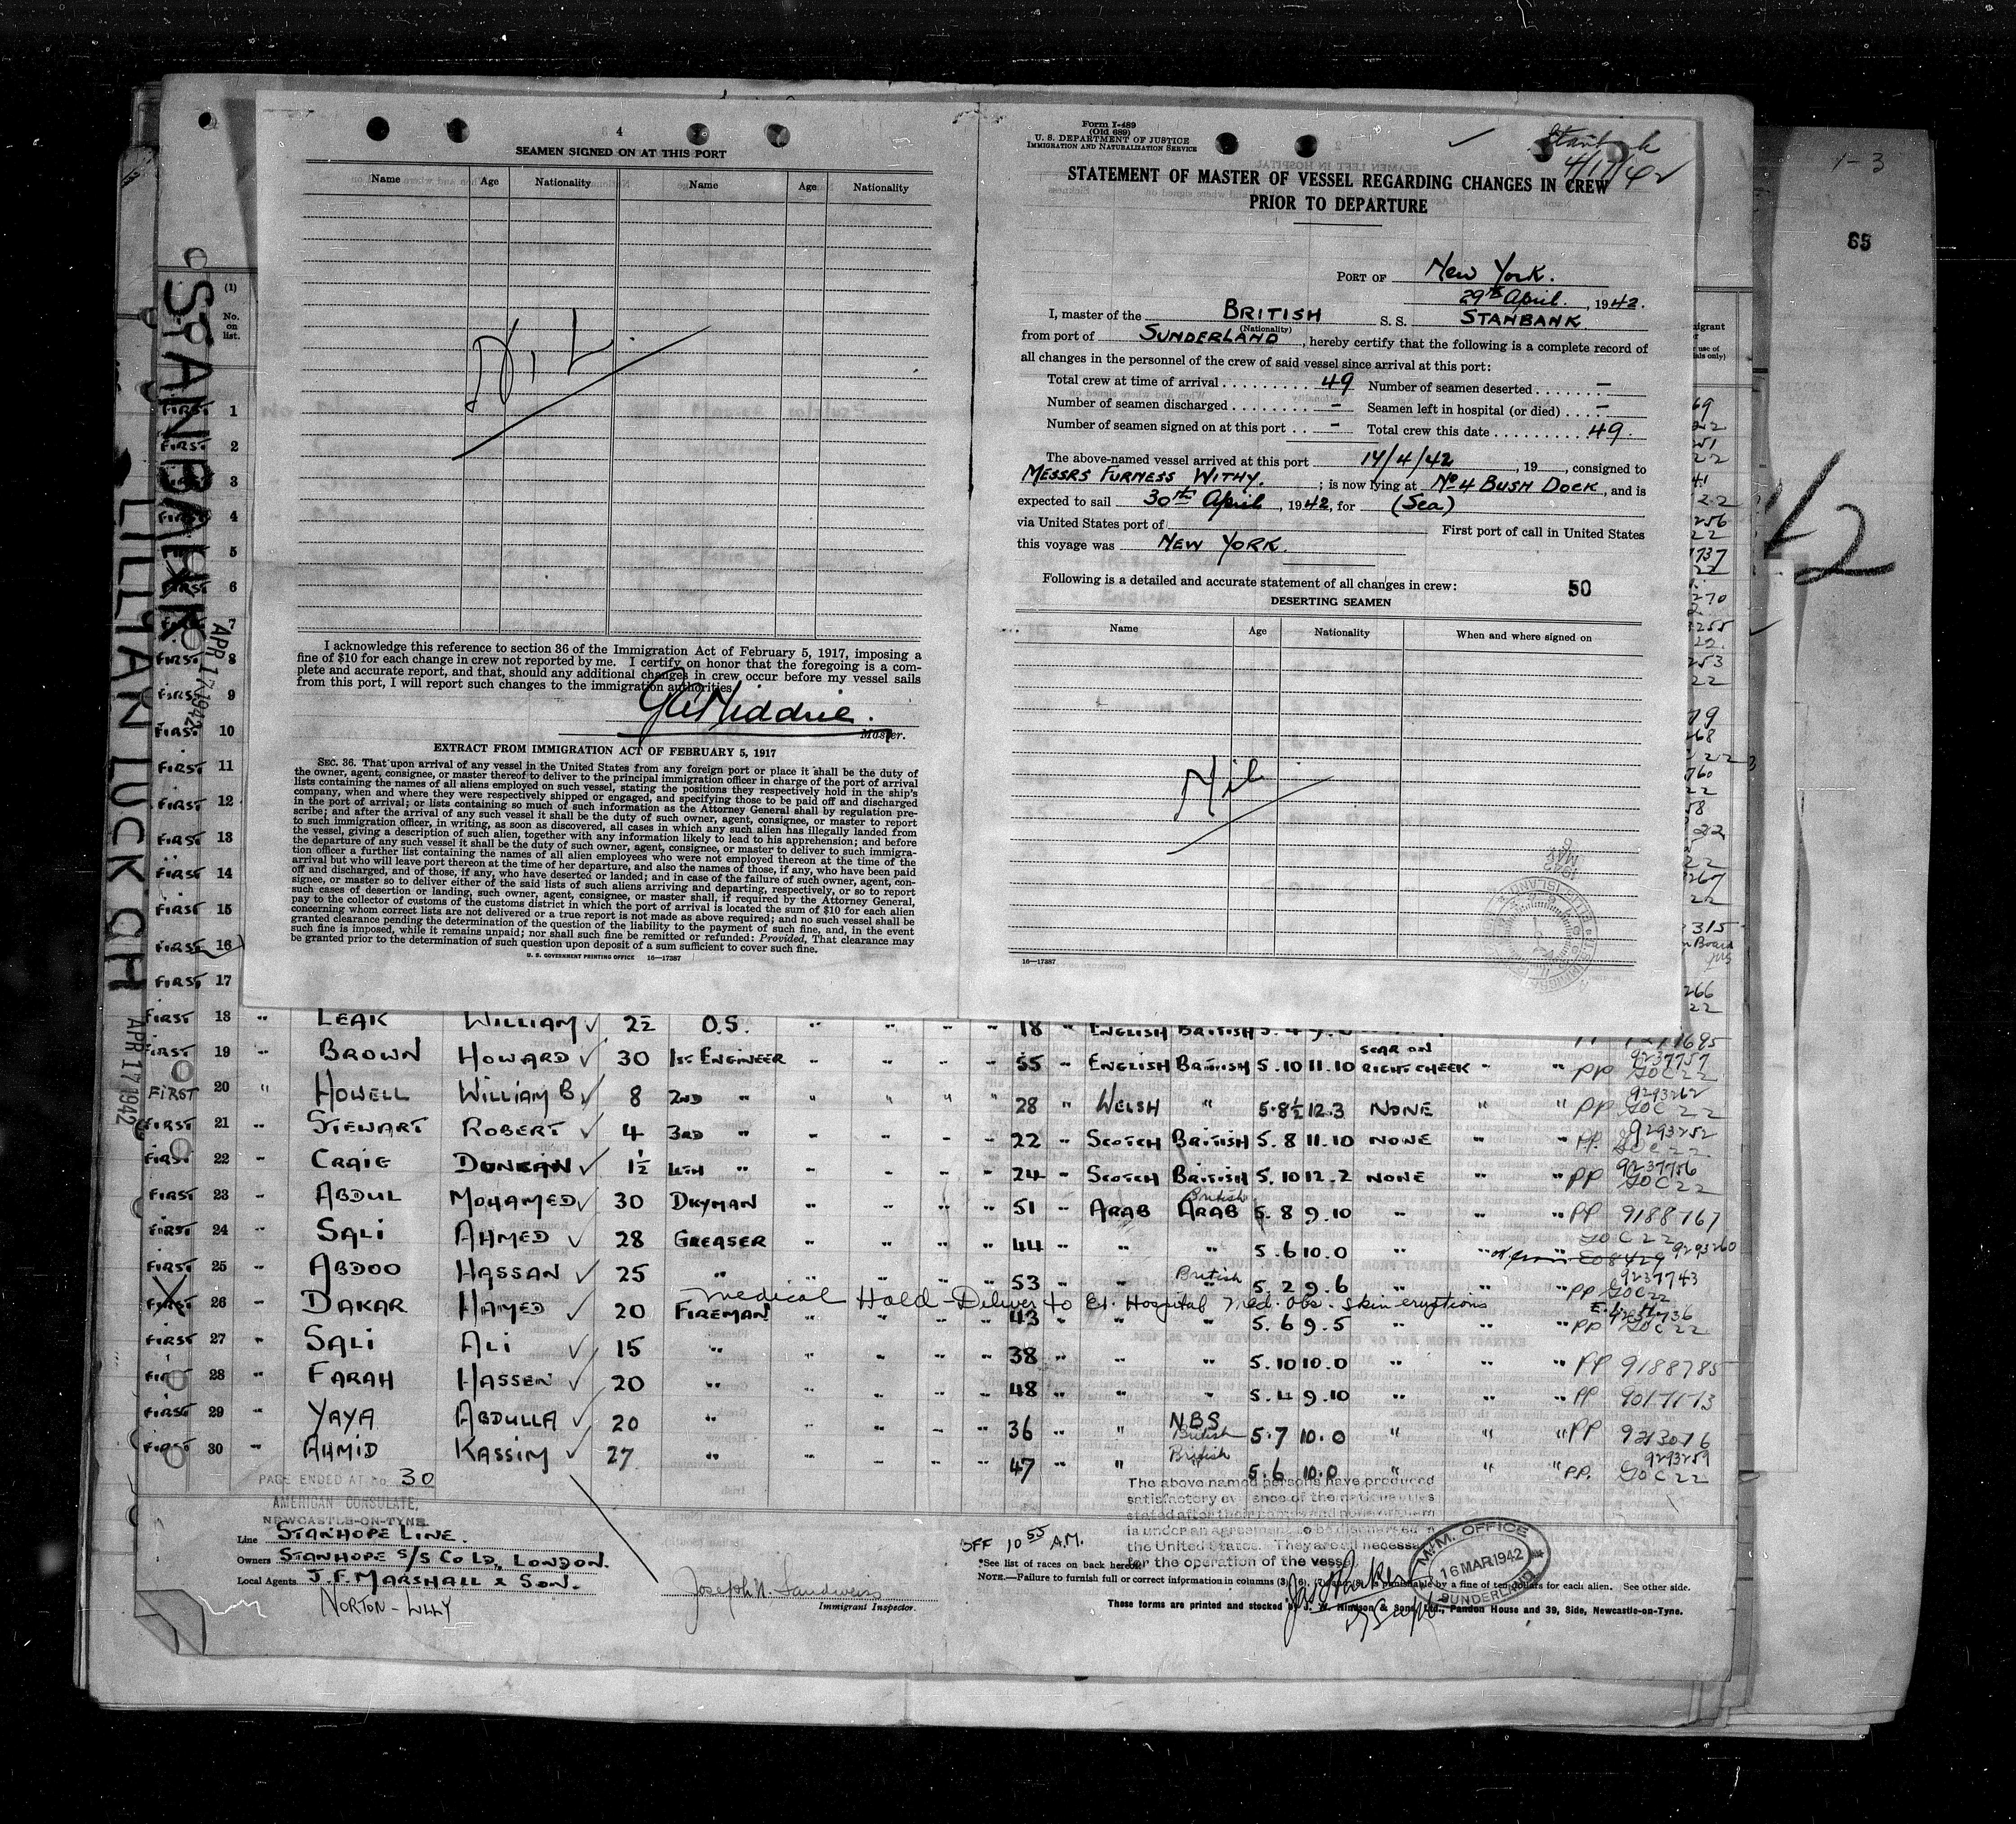 4
SEAMEN SIGNED ON AT THIS PORT
Name Age Nationality Name Age Nationality
I acknowledge this reference to section 36 of the Immigration Act of February 5, 1917, imposing a
fine of $10 for each change in crew not reported by me. I certify on honor that the foregoing is a com-
plete and accurate report, and that, should any additional changes in crew occur before my vessel sails
from this port, I will report such changes to the immigration authorities.
Master.
EXTRACT FROM IMMIGRATION ACT OF FEBRUARY 5, 1917
SEC. 36. That upon arrival of any vessel in the United States from any foreign port or place it shall be the duty of
the owner, agent, consignee, or master thereof to deliver to the principal immigration officer in charge of the port of arrival
lists containing the names of all aliens employed on such vessel, stating the positions they respectively hold in the ship's
company, when and where they were respectively shipped or engaged, and specifying those to be paid off and discharged
in the port of arrival; or lists containing so much of such information as the Attorney General shall by regulation pre-
scribe; and after the arrival of any such vessel it shall be the duty of such owner, agent, consignee, or master to report
to such immigration officer, in writing, as soon as discovered, all cases in which any such alien has illegally landed from
the vessel, giving a description of such alien, together with any information likely to lead to his apprehension; and before
the departure of any such vessel it shall be the duty of such owner, agent, consignee, or master to deliver to such immigra-
tion officer a further list containing the names of all alien employees who were not employed thereon at the time of the
arrival but who will leave port thereon at the time of her departure, and also the names of those, if any, who have been paid
off and discharged, and of those, if any, who have deserted or landed; and in case of the failure of such owner, agent, con-
signee, or master so to deliver either of the said lists of such aliens arriving and departing, respectively, or so to report
such cases of desertion or landing, such owner, agent, consignee, or master shall, if required by the Attorney General,
pay to the collector of customs of the customs district in which the port of arrival is located the sum of $10 for each alien
concerning whom correct lists are not delivered or a true report is not made as above required; and no such vessel shall be
granted clearance pending the determination of the question of the liability to the payment of such fine, and, in the event
such fine is imposed, while it remains unpaid; nor shall such fine be remitted or refunded: Provided, That clearance may
be granted prior to the determination of such question upon deposit of a sum sufficient to cover such fine.
U. S. GOVERNMENT PRINTING OFFICE 16—17387
Form I-489
(Old 689)
U. S. DEPARTMENT OF JUSTICE
IMMIGRATION AND NATURALIZATION SERVICE
Stanbank
4/17/42
STATEMENT OF MASTER OF VESSEL REGARDING CHANGES IN CREW
PRIOR TO DEPARTURE
PORT OF New York.
29th April, 1942.
I, master of the BRITISH S. S. STANBANK
(Nationality)
from port of SUNDERLAND, hereby certify that the following is a complete record of
all changes in the personnel of the crew of said vessel since arrival at this port:
Total crew at time of arrival 49 Number of seamen deserted —
Number of seamen discharged — Seamen left in hospital (or died) —
Number of seamen signed on at this port — Total crew this date 49.
The above-named vessel arrived at this port 14/4/42, 19__, consigned to
MESSRS FURNESS WITHY. ; is now lying at No 4 BUSH DOCK, and is
expected to sail 30th April, 1942, for (Sea)
via United States port of First port of call in United States
this voyage was NEW YORK.
Following is a detailed and accurate statement of all changes in crew: 50
DESERTING SEAMEN
Name Age Nationality When and where signed on
Nil
16—17387
1-3
65
STANBANK
APR 17 1942
LILLIAN LUCKENBACH
APR 17 1942
(1)
No. on list.
FIRST 1
FIRST 2
FIRST 3
FIRST 4
FIRST 5
FIRST 6
FIRST 7
FIRST 8
FIRST 9
FIRST 10
FIRST 11
FIRST 12
FIRST 13
FIRST 14
FIRST 15
FIRST 16
FIRST 17
FIRST 18 " LEAK WILLIAM 2½ O.S. " " " " 18 " ENGLISH BRITISH
FIRST 19 " BROWN HOWARD 30 1ST ENGINEER " " " " 55 " ENGLISH BRITISH 5.10 11.10 SCAR ON RIGHT CHEEK " " PP 9237757 GOC 22
FIRST 20 " HOWELL WILLIAM B 8 2ND " " " " " 28 " WELSH " 5.8½ 12.3 NONE " " PP 9293262 GOC 22
FIRST 21 " STEWART ROBERT 4 3RD " " " " " 22 " SCOTCH BRITISH 5.8 11.10 NONE " " PP. 9293252 GOC 22
FIRST 22 " CRAIG DUNCAN 1½ 4TH " " " " " 24 " SCOTCH BRITISH 5.10 12.2 NONE " " PP 9237756 GOC 22
FIRST 23 " ABDUL MOHAMED 30 DKYMAN " " " " 51 " ARAB ARAB British 5.8 9.10 " " " PP 9188767
FIRST 24 " SALI AHMED 28 GREASER " " " " 44 " " " 5.6 10.0 " " " GOC 22 9293260
FIRST 25 " ABDOO HASSAN 25 " " " " " 53 " " British 5.2 9.6 " " " PP 9237743 GOC 22
medical Hold - Deliver to E.I. Hospital Med. Obs. Skin eruptions
26 " DAKAR HAMED 20 FIREMAN " " " " 43 " " " 5.6 9.5 " " " PP GOC 22
FIRST 27 " SALI ALI 15 " " " " " 38 " " " 5.10 10.0 " " " PP 9188785
FIRST 28 " FARAH HASSEN 20 " " " " " 48 " " " 5.4 9.10 " " " PP 9017173
FIRST 29 " YAYA ABDULLA 20 " " " " " 36 " " NBS British 5.7 10.0 " " " PP 9213076
FIRST 30 " AHMID KASSIM 27 " " " " " 47 " " British 5.6 10.0 " " " PP. 9293259 GOC 22
PAGE ENDED AT No. 30
AMERICAN CONSULATE,
NEWCASTLE-ON-TYNE.
Line STANHOPE LINE.
Owners STANHOPE S/S CO LD, LONDON.
Local Agents J. F. MARSHALL & SON.
NORTON-LILLY
Immigrant Inspector.
BFF 10 55 A.M.
The above named persons have produced
satisfactory evidence of the nationalities
the United States. They are all necessary
for the operation of the vessel.
*See list of races on back hereof.
NOTE.—Failure to furnish full or correct information in columns punishable by a fine of ten dollars for each alien. See other side.
These forms are printed and stocked by J. W. Hindson & Sons, Ltd., Pandon House and 39, Side, Newcastle-on-Tyne.
M.M. OFFICE
16 MAR 1942
SUNDERLAND